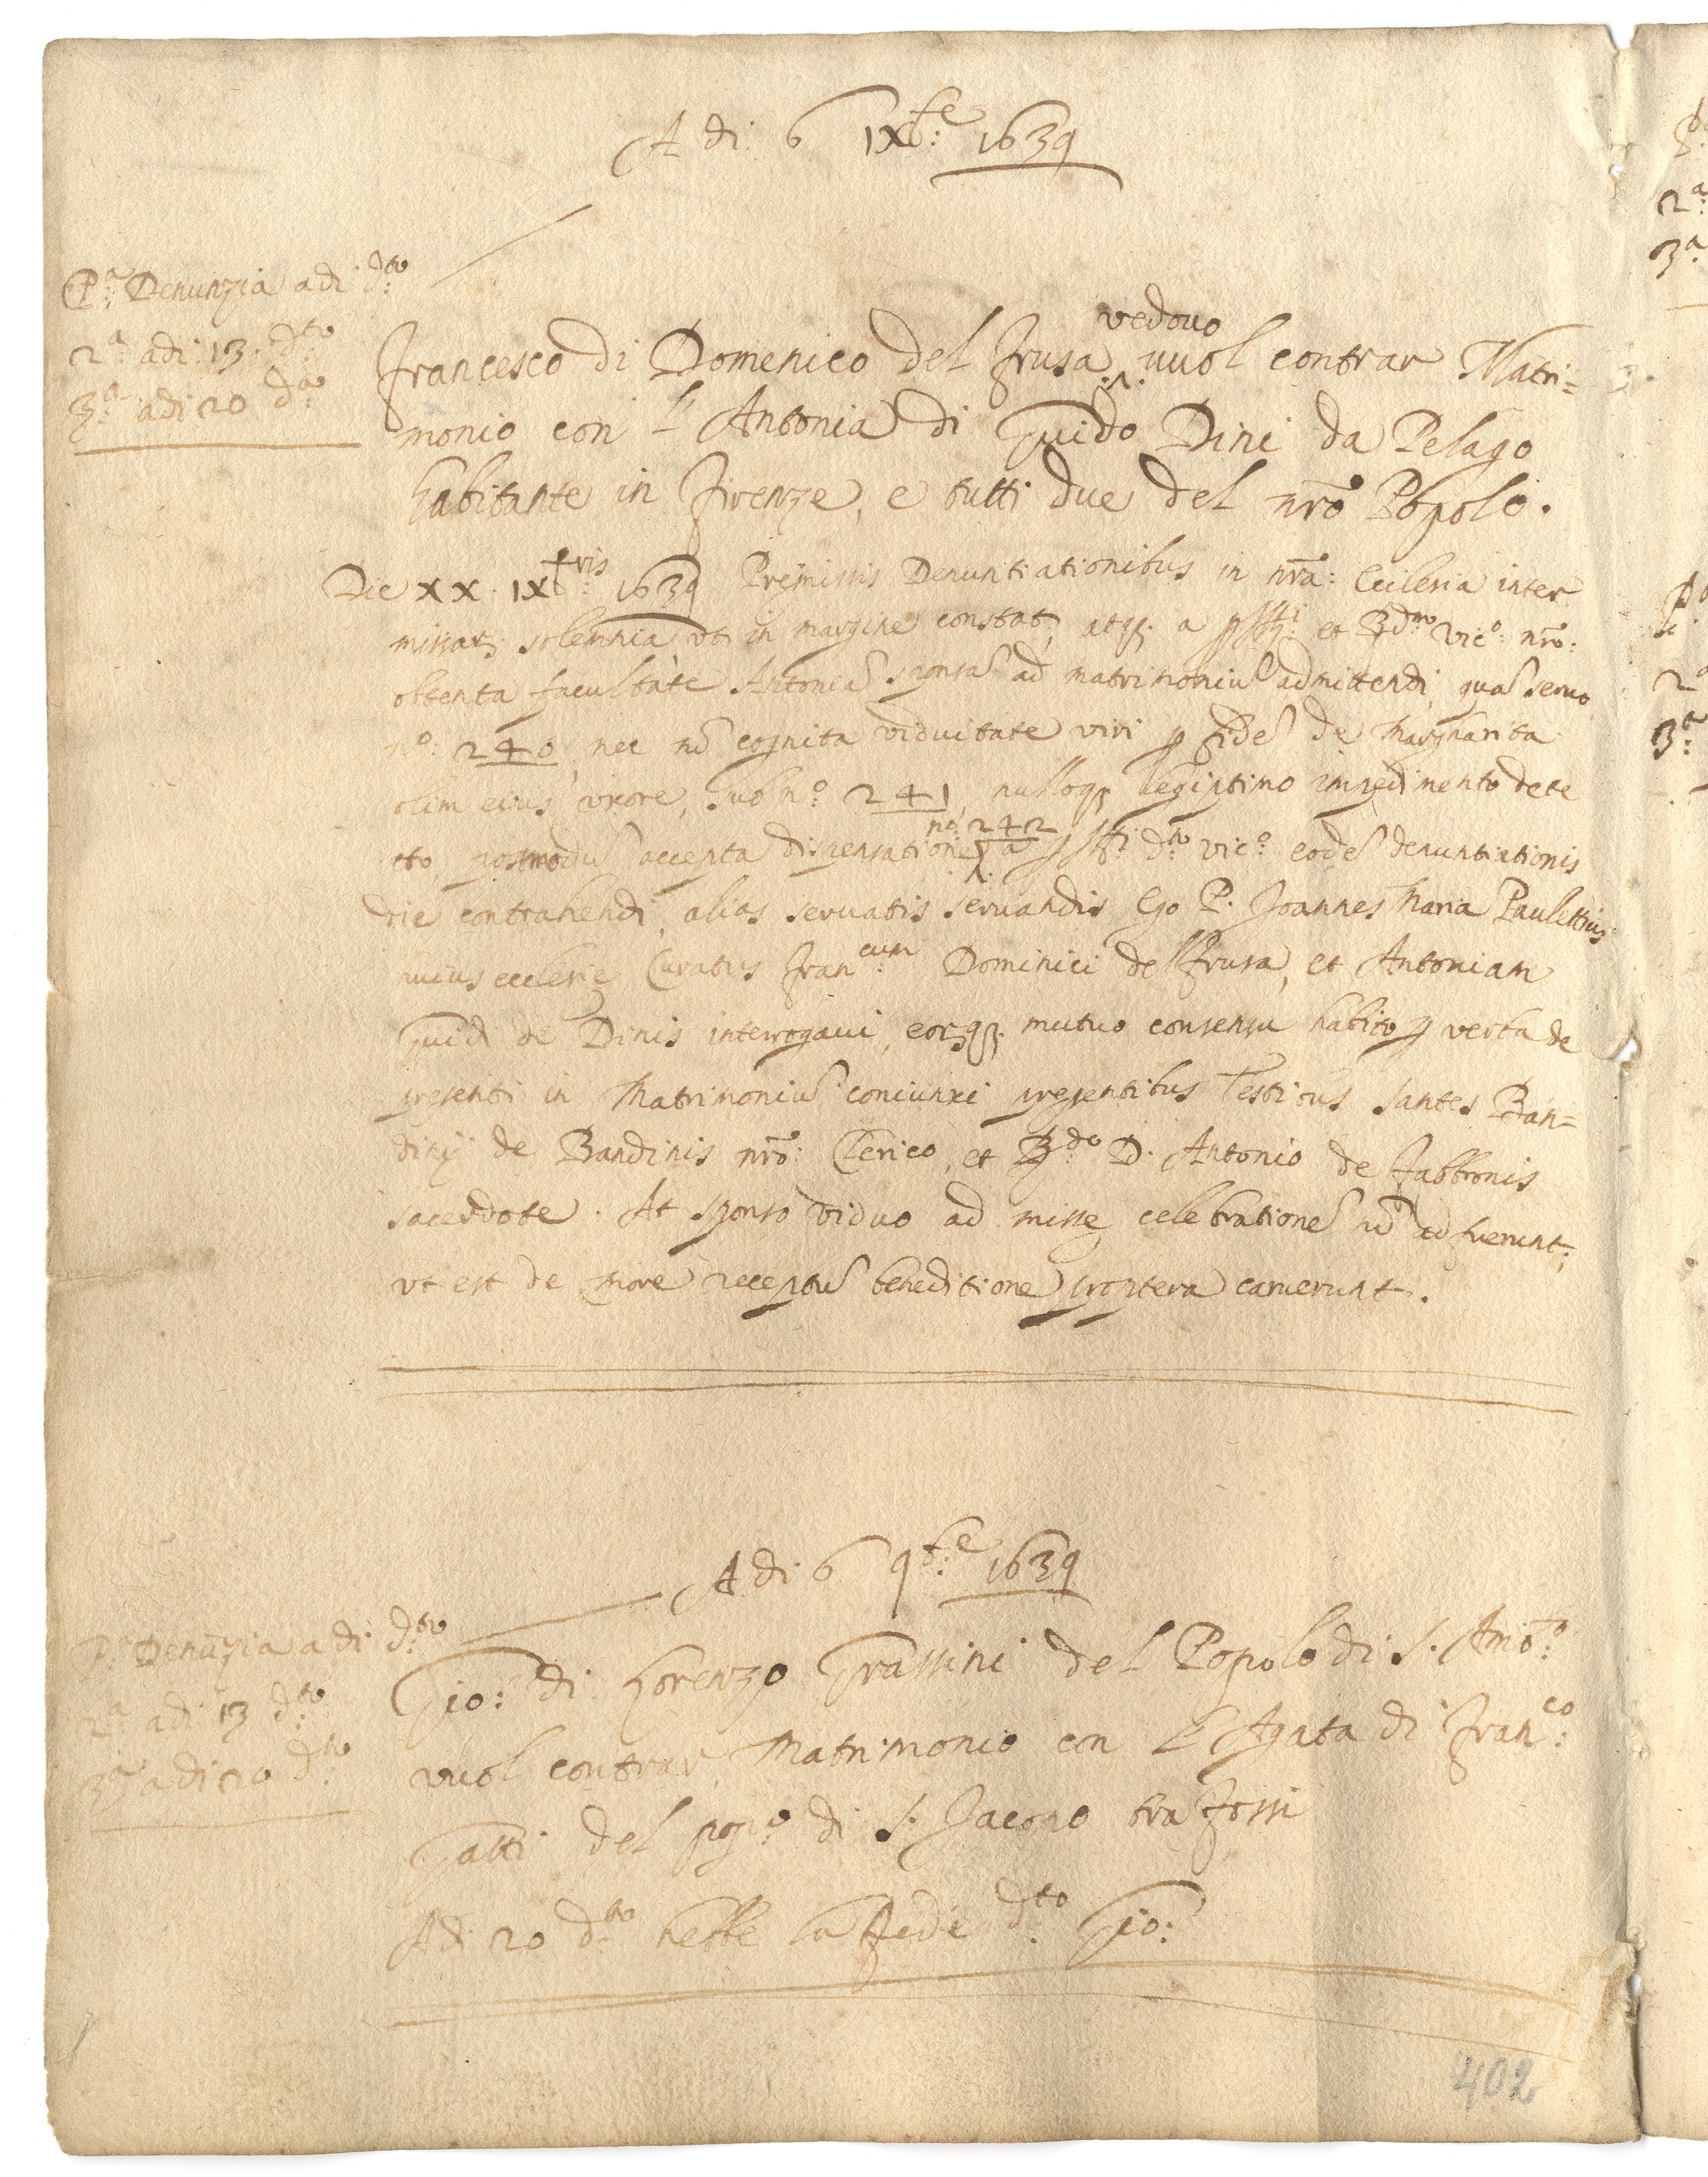 A di 6 IXbre: 1639
Pa: Denunzia adi dto:
2a: adi: 13: dto:
3a: adi 20 do:
vedouo
Francesco di Domenico del Frusa uuol contrar Matri=
monio con l'Antonia di Guido Dini da Pelago
habitante in Firenze, e tutti due del nr̃o Popolo.
Die XX. IXbris: 1639 Premissis Denuntiationibus in nr̃a: Ecclesia inter
missarꝝ solemnia, vt in margine constat, atqꝫ a et Rdmo Vico: nr̃o:
obtenta facultate Antoniã sponsã ad matrimoniũ admittendi, quã seruo
no: 240, nec nõ cognita viduitate viri ꝑ fidẽ de Margharita
olim eius uxore, sub no: 241, nulloqꝫ legiptimo impedimento dete
no: 242
cto, postmodũ accepta dispensatione a dto Vico: eodẽ denuntiationis
die contrahendi, alias seruatis seruandis Ego P. Joannes Maria Paulettius
huius ecclesię Curatus Francum: Dominici del Frusa, et Antoniam
Guidi de Dinis interrogaui, eorꝝqꝫ. mutuo consensu habito ꝑ verba de
presenti in Matrimoniũ coniunxi presentibus Testibus Santes Ban=
dinij de Bandinis nr̃o: Clerico, et Rdo: D. Antonio de Fabbronis
sacerdote. At sponso viduo ad missę celebrationẽ nõ adfuerunt;
vt est de more receptũ beneditione propterea caruerunt.
A di 6 9bre: 1639
Pa: Denũzia a di dto:
2a: adi 13 dto:
3a: adi 20 dto:
Gio: di Lorenzo Grassini del Popolo di S. Amбo:
vuol contrar Matrimonio con l'Agata di Franco:
Gatti del popo: di S. Jacopo tra Fossi
Adi 20 dto: hebbe la Fede dto: Gio:
402
2a:
3a:
2a
3a: